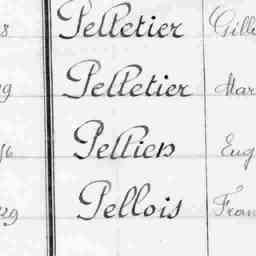 8 Pelletier Gille
29 Pelletier Mar
16 Peltier Eug
229 Pellois Fran